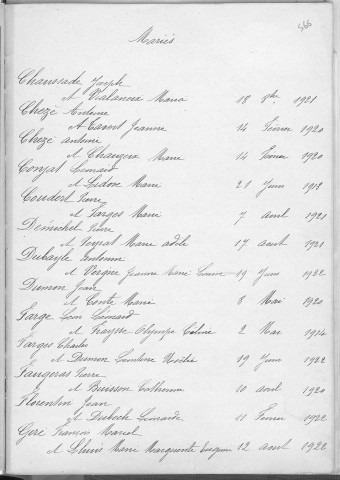 46
Mariés
Chaussade Joseph
et Vialaneix Maria 18 8bre 1921
Chezé Antoine
et Jeanne 14 février 1920
Chezé Antoine
et Marie 14 février 1920
Conjat Léonard
et Lidove Marie 21 Juin 1912
Coudert Pierre
et Farges Marie 7 avril 1921
Demichel Pierre
et Veyrat Marie adèle 17 aout 1921
Dubayle Antonin
et Vergne Jeanne Marie Louise 19 Juin 1922
Dumon Jean
et Conte Marie 8 Mai 1920
Farge Léon Léonard
et Fraysse Olympe Céline 2 Mai 1914
Farges Charles
et Dumon 19 Juin 1922
Faugeras Pierre
et Buisson Catherine 10 avril 1920
Florentin Jean
et Dubech Léonarde 11 Février 1922
Gire François Marcel
et Marie Marguerite 12 aout 1922